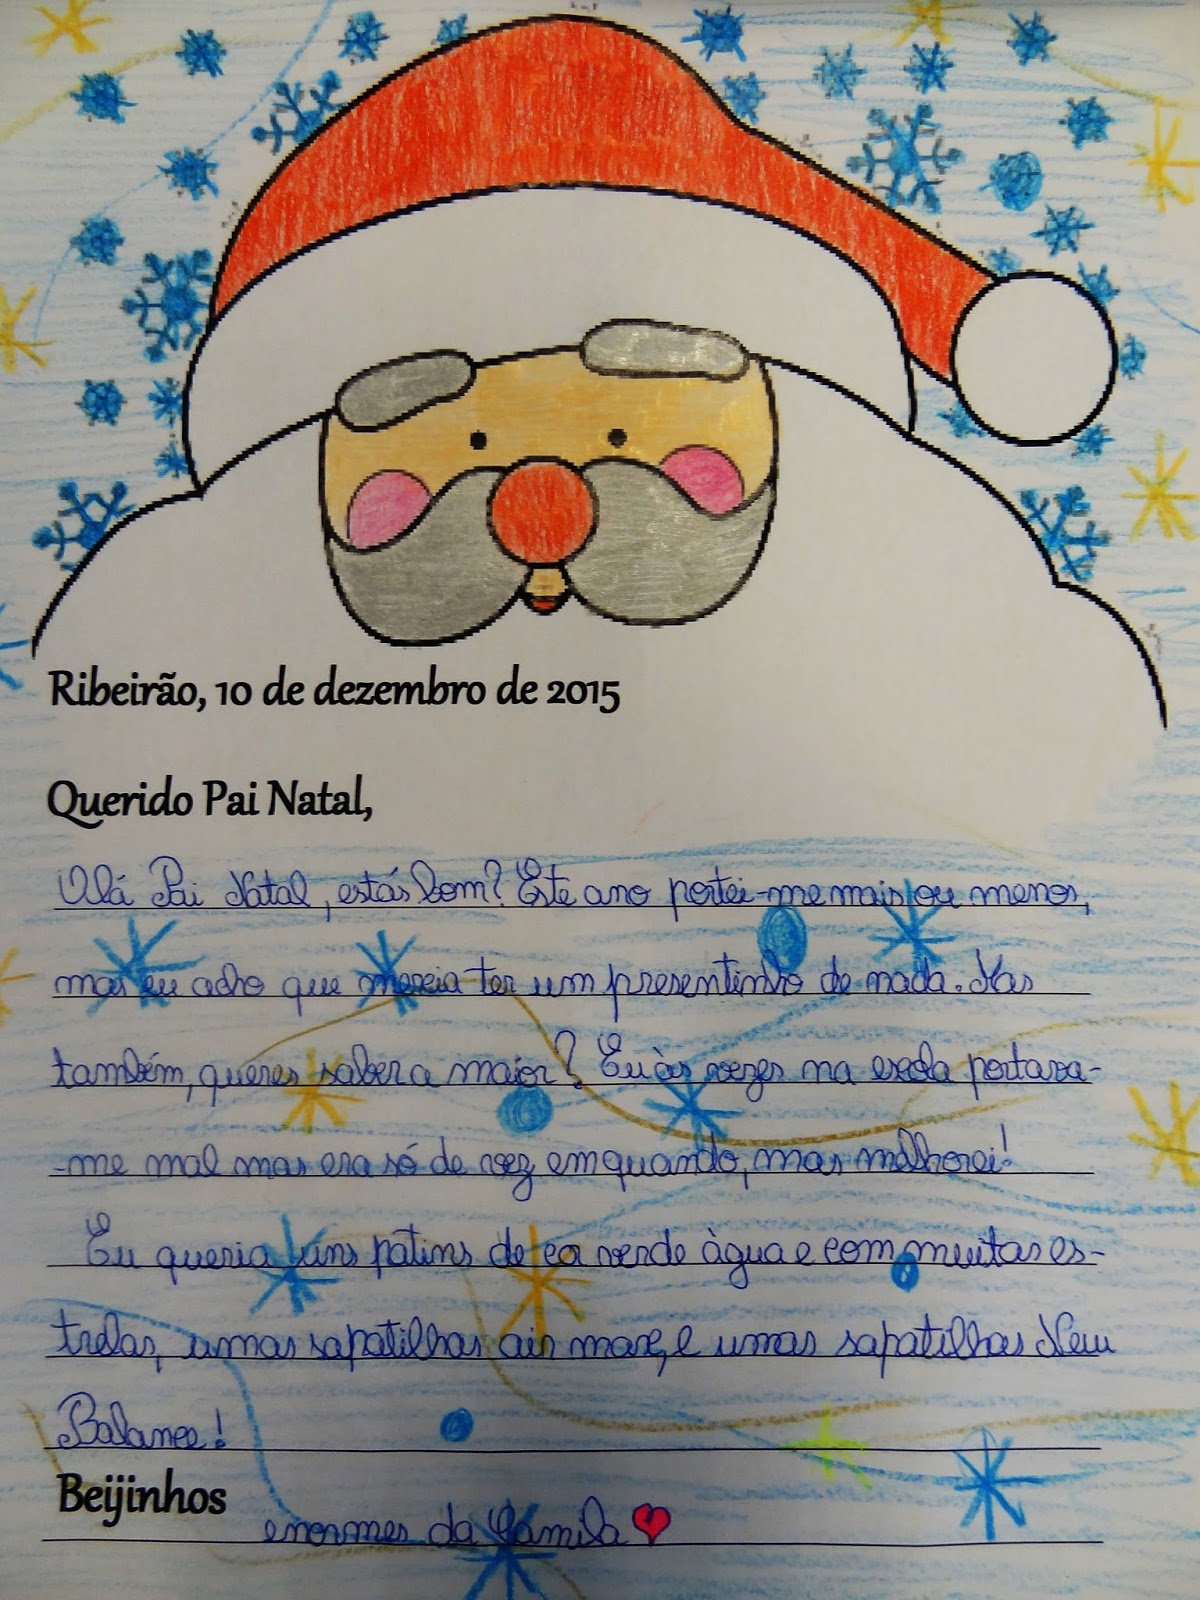 Ribeirão, 10 de dezembro de 2015
Querido Pai Natal,
Olá Pai Natal, estás bom? Este ano portei-me mais ou menos,
mas eu acho que merecia ter um presentinho de nada. Mas
também, queres saber a maior? Eu às vezes na escola portava-
-me mal mas era só de vez em quando, mas melhorei!
Eu queria uns patins de cor verde àgua e com muitas es-
trelas, umas sapatilhas air max, e umas sapatilhas New
Balance!
Beijinhos
enormes da Camila